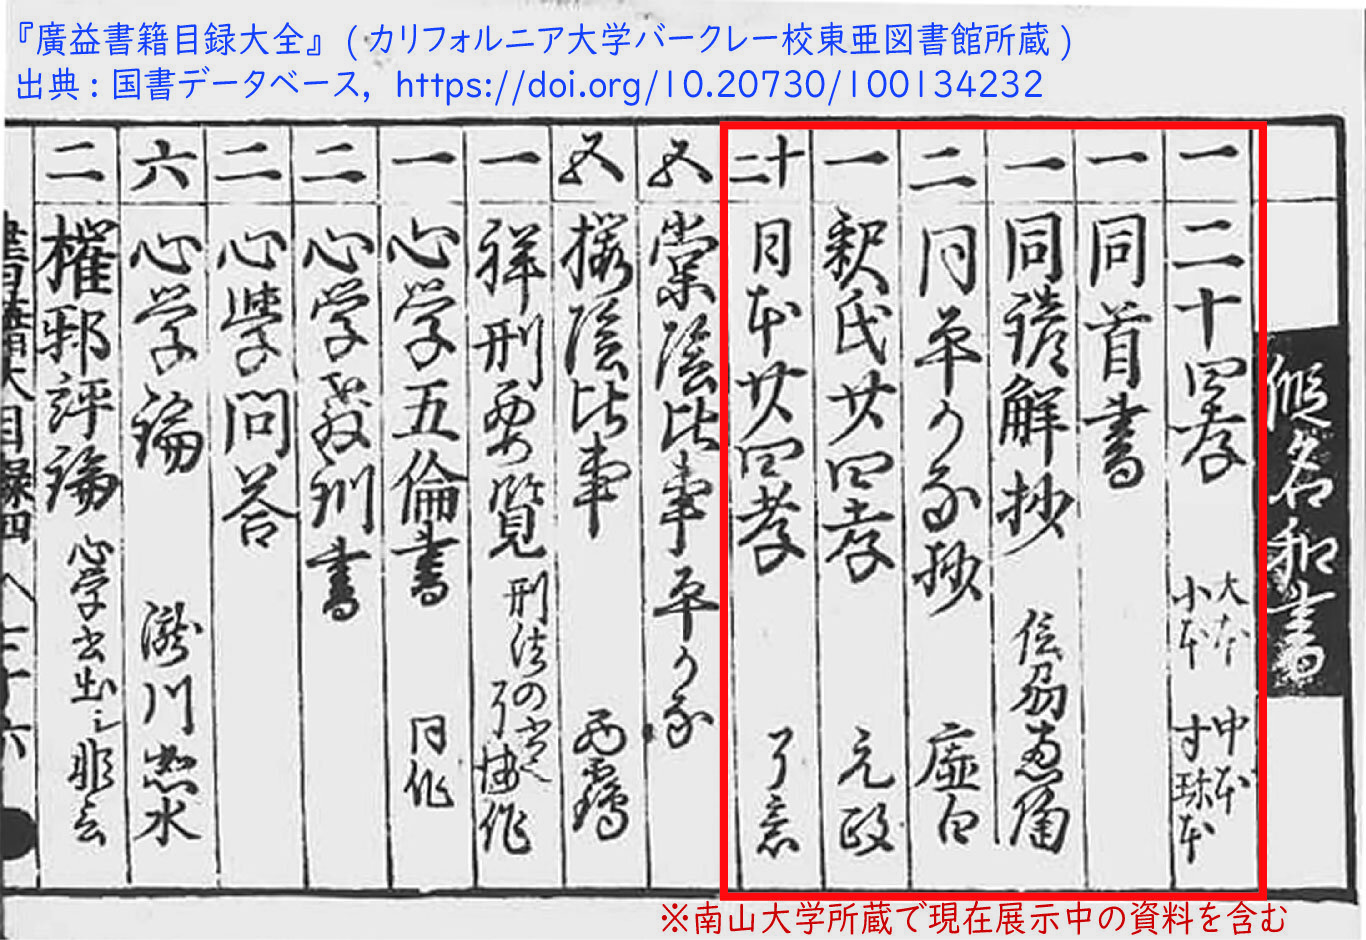 『廣益書籍目録大全』(カリフォルニア大学バークレー校東亜図書館所蔵)
出典:国書データベース, https://doi.org/10.20730/100134232
假名和書
一 二十四孝 大本 中本 小本 寸珎本
一 同首書
一 同諺解抄
二 同平かな抄 虚白
一 釈氏廿四孝 元政
十二 日本廿四孝 了意
五 棠陰比事平かな
五 撥陰比事 西鶴
一 祥刑要覧 刑法の書也 了播作
一 心学五倫書 同作
二 心学教訓書
二 心學問答
六 心学論 瀧川恕水
二 権邪評論 心学书出シ非云
書籍大目録四 八 二十六
※南山大学所蔵で現在展示中の資料を含む